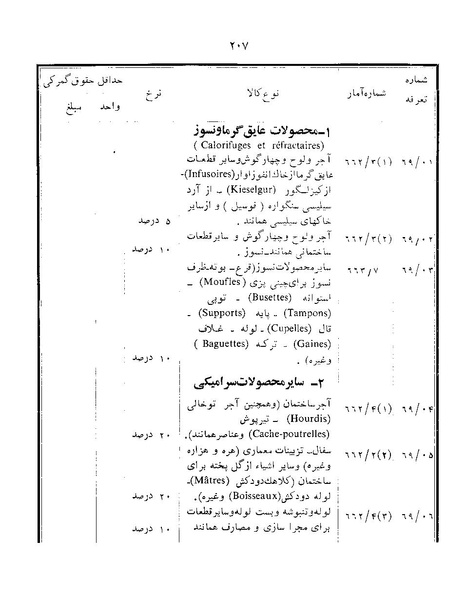 ۲۰۷
شماره تعرفه	شماره آمار	نوع کالا	نرخ	حداقل حقوق گمرکی
واحد	مبلغ
۱ـ محصولات عایق گرما ونسوز
(Calorifuges et réfractaires)
۶۹/۰۱	۶۶۲/۳(۱)	آجر ولوح وچهارگوش وسایر قطعات
عایق گرما از خاک انفوزاوار (Infusoires)ـ
از کیزلگور (Kieselgur) ـ از آرد
سیلیسی سنگواره (فوسیل) و از سایر
خاکهای سیلیسی همانند .	۵ درصد
۶۹/۰۲	۶۶۲/۳(۲)	آجر ولوح وچهارگوش و سایر قطعات
ساختمانی همانند ـ نسوز .	۱۰ درصد
۶۹/۰۳	۶۶۳/۷	سایر محصولات نسوز (قرع ـ بوته ـ ظرف
نسوز برای چینی پزی (Moufles) ـ
استوانه (Busettes) ـ توپی
(Tampons) ـ پایه (Supports) ـ
قال (Cupelles) ـ لوله ـ غلاف
(Gaines) ـ ترکه (Baguettes)
وغیره) .	۱۰ درصد
۲ـ سایر محصولات سرامیکی
۶۹/۰۴	۶۶۲/۴(۱)	آجر ساختمان (وهمچنین آجر توخالی
(Hourdis) ـ تیرپوش
(Cache-poutrelles) وعناصر همانند).	۲۰ درصد
۶۹/۰۵	۶۶۲/۲(۲)	سفال ـ تزیینات معماری (هره و هزاره
وغیره) وسایر اشیاء از گل پخته برای
ساختمان (کلاهک دودکش (Mâtres)ـ
لوله دودکش (Boisseaux) وغیره).	۲۰ درصد
۶۹/۰۶	۶۶۲/۴(۳)	لوله وتنبوشه وبست لوله وسایر قطعات
برای مجرا سازی و مصارف همانند	۱۰ درصد